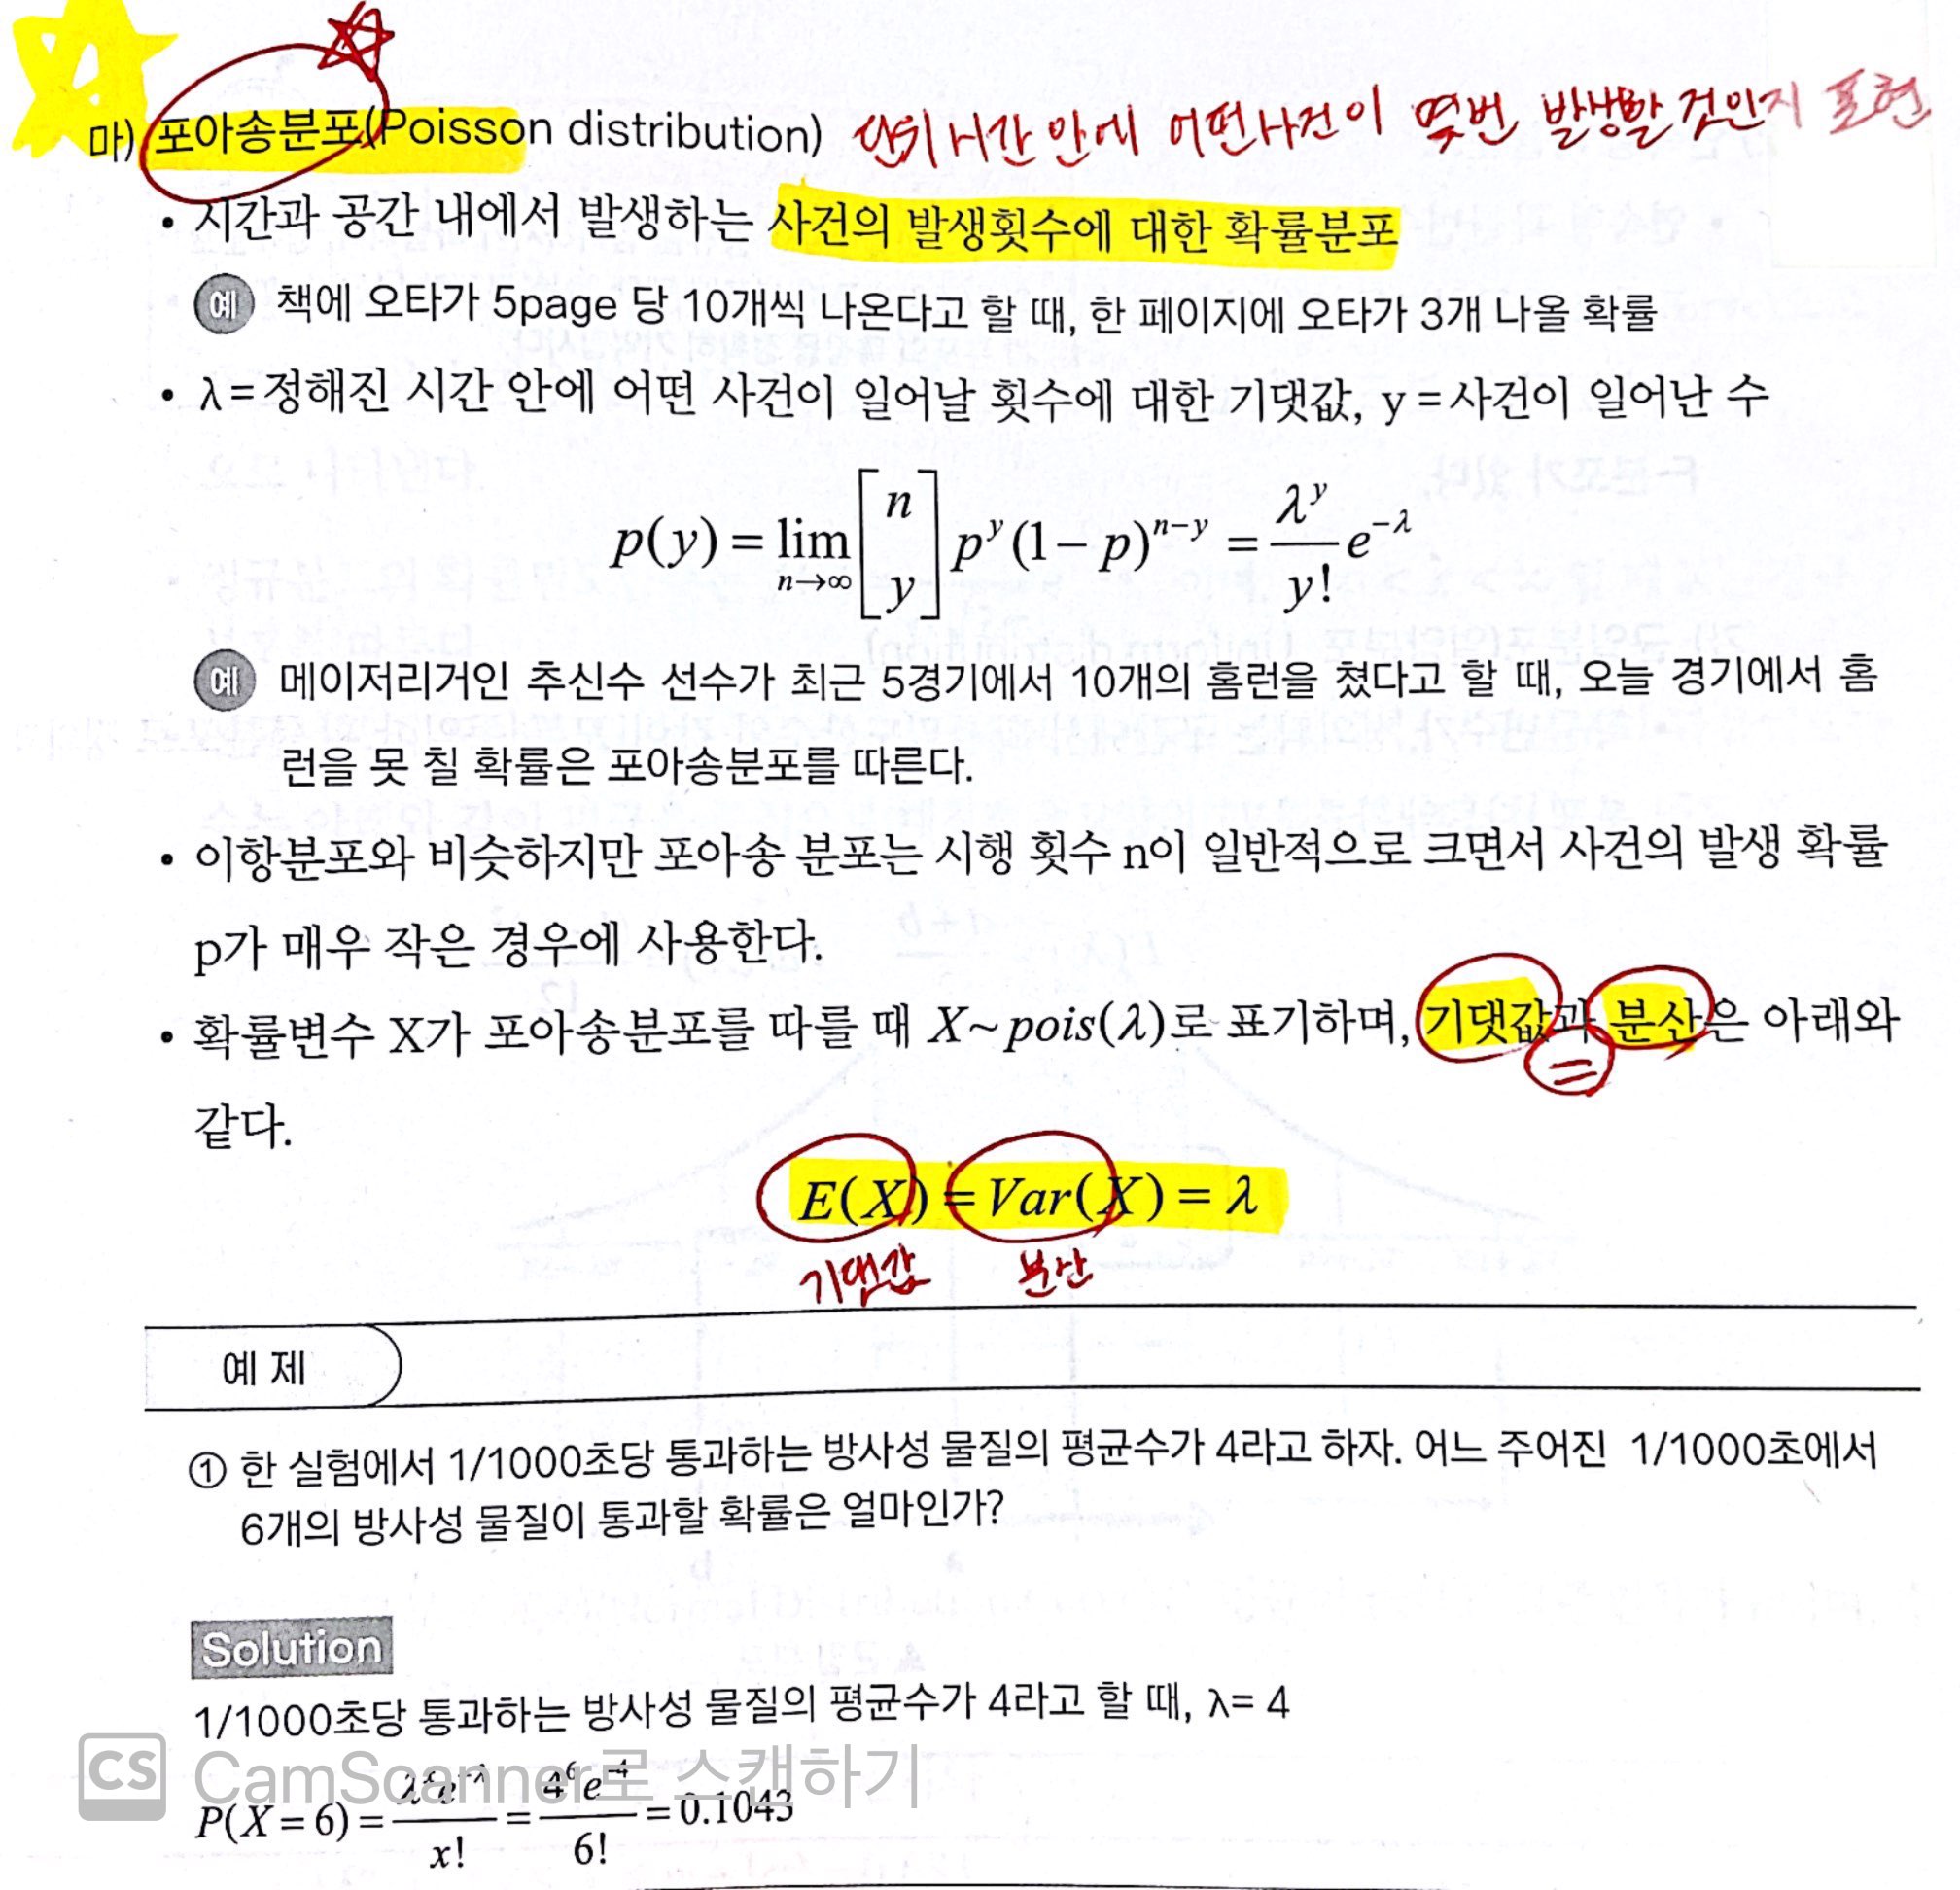 마) 포아송분포(Poisson distribution) 단위시간 안에 어떤사건이 몇번 발생할 것인지 표현
• 시간과 공간 내에서 발생하는 사건의 발생횟수에 대한 확률분포
예 책에 오타가 5page 당 10개씩 나온다고 할 때, 한 페이지에 오타가 3개 나올 확률
• λ=정해진 시간 안에 어떤 사건이 일어날 횟수에 대한 기댓값, y=사건이 일어난 수
p(y) = lim_{n→∞} [n y] p^y (1−p)^{n−y} = λ^y / y! e^{−λ}
예 메이저리거인 추신수 선수가 최근 5경기에서 10개의 홈런을 쳤다고 할 때, 오늘 경기에서 홈
런을 못 칠 확률은 포아송분포를 따른다.
• 이항분포와 비슷하지만 포아송 분포는 시행 횟수 n이 일반적으로 크면서 사건의 발생 확률
p가 매우 작은 경우에 사용한다.
• 확률변수 X가 포아송분포를 따를 때 X~pois(λ)로 표기하며, 기댓값과 분산은 아래와
=
같다.
E(X) = Var(X) = λ
기댓값 분산
예 제
① 한 실험에서 1/1000초당 통과하는 방사성 물질의 평균수가 4라고 하자. 어느 주어진 1/1000초에서
6개의 방사성 물질이 통과할 확률은 얼마인가?
Solution
1/1000초당 통과하는 방사성 물질의 평균수가 4라고 할 때, λ= 4
CS CamScanner로 스캔하기
P(X=6) = λ^x e^{−λ} / x! = 4^6 e^{−4} / 6! = 0.1043